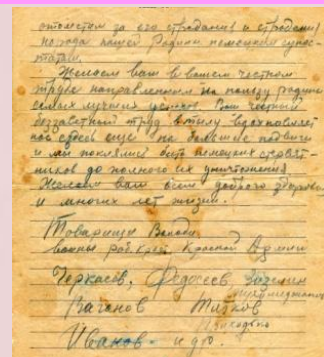 отомстим за его страдания и страдания
народа нашей Родины немецким
Желаем вам в вашем честном
труде направленном на пользу родины
самых лучших успехов. Ваш честный
беззаветный труд в тылу вдохновляет
нас здесь еще на большие подвиги
и мы поклялись бить немецких
до полного их уничтожения
Желаем вам всем доброго здоровья
и многих лет жизни.
Товарищи
воины раб. крест. Красной Армии
Черкасов, Федосеев
Вагонов Титков
Приходько
Иванов и др.